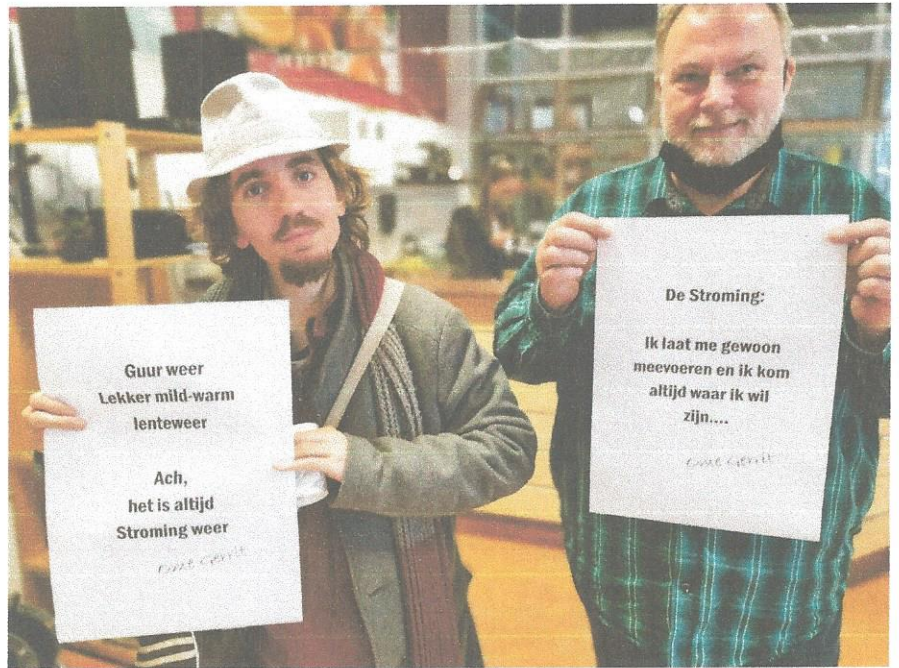 Guur weer
Lekker mild-warm
lenteweer
Ach,
het is altijd
Stroming weer
ome Gerrit
De Stroming:
Ik laat me gewoon
meevoeren en ik kom
altijd waar ik wil
zijn....
ome Gerrit